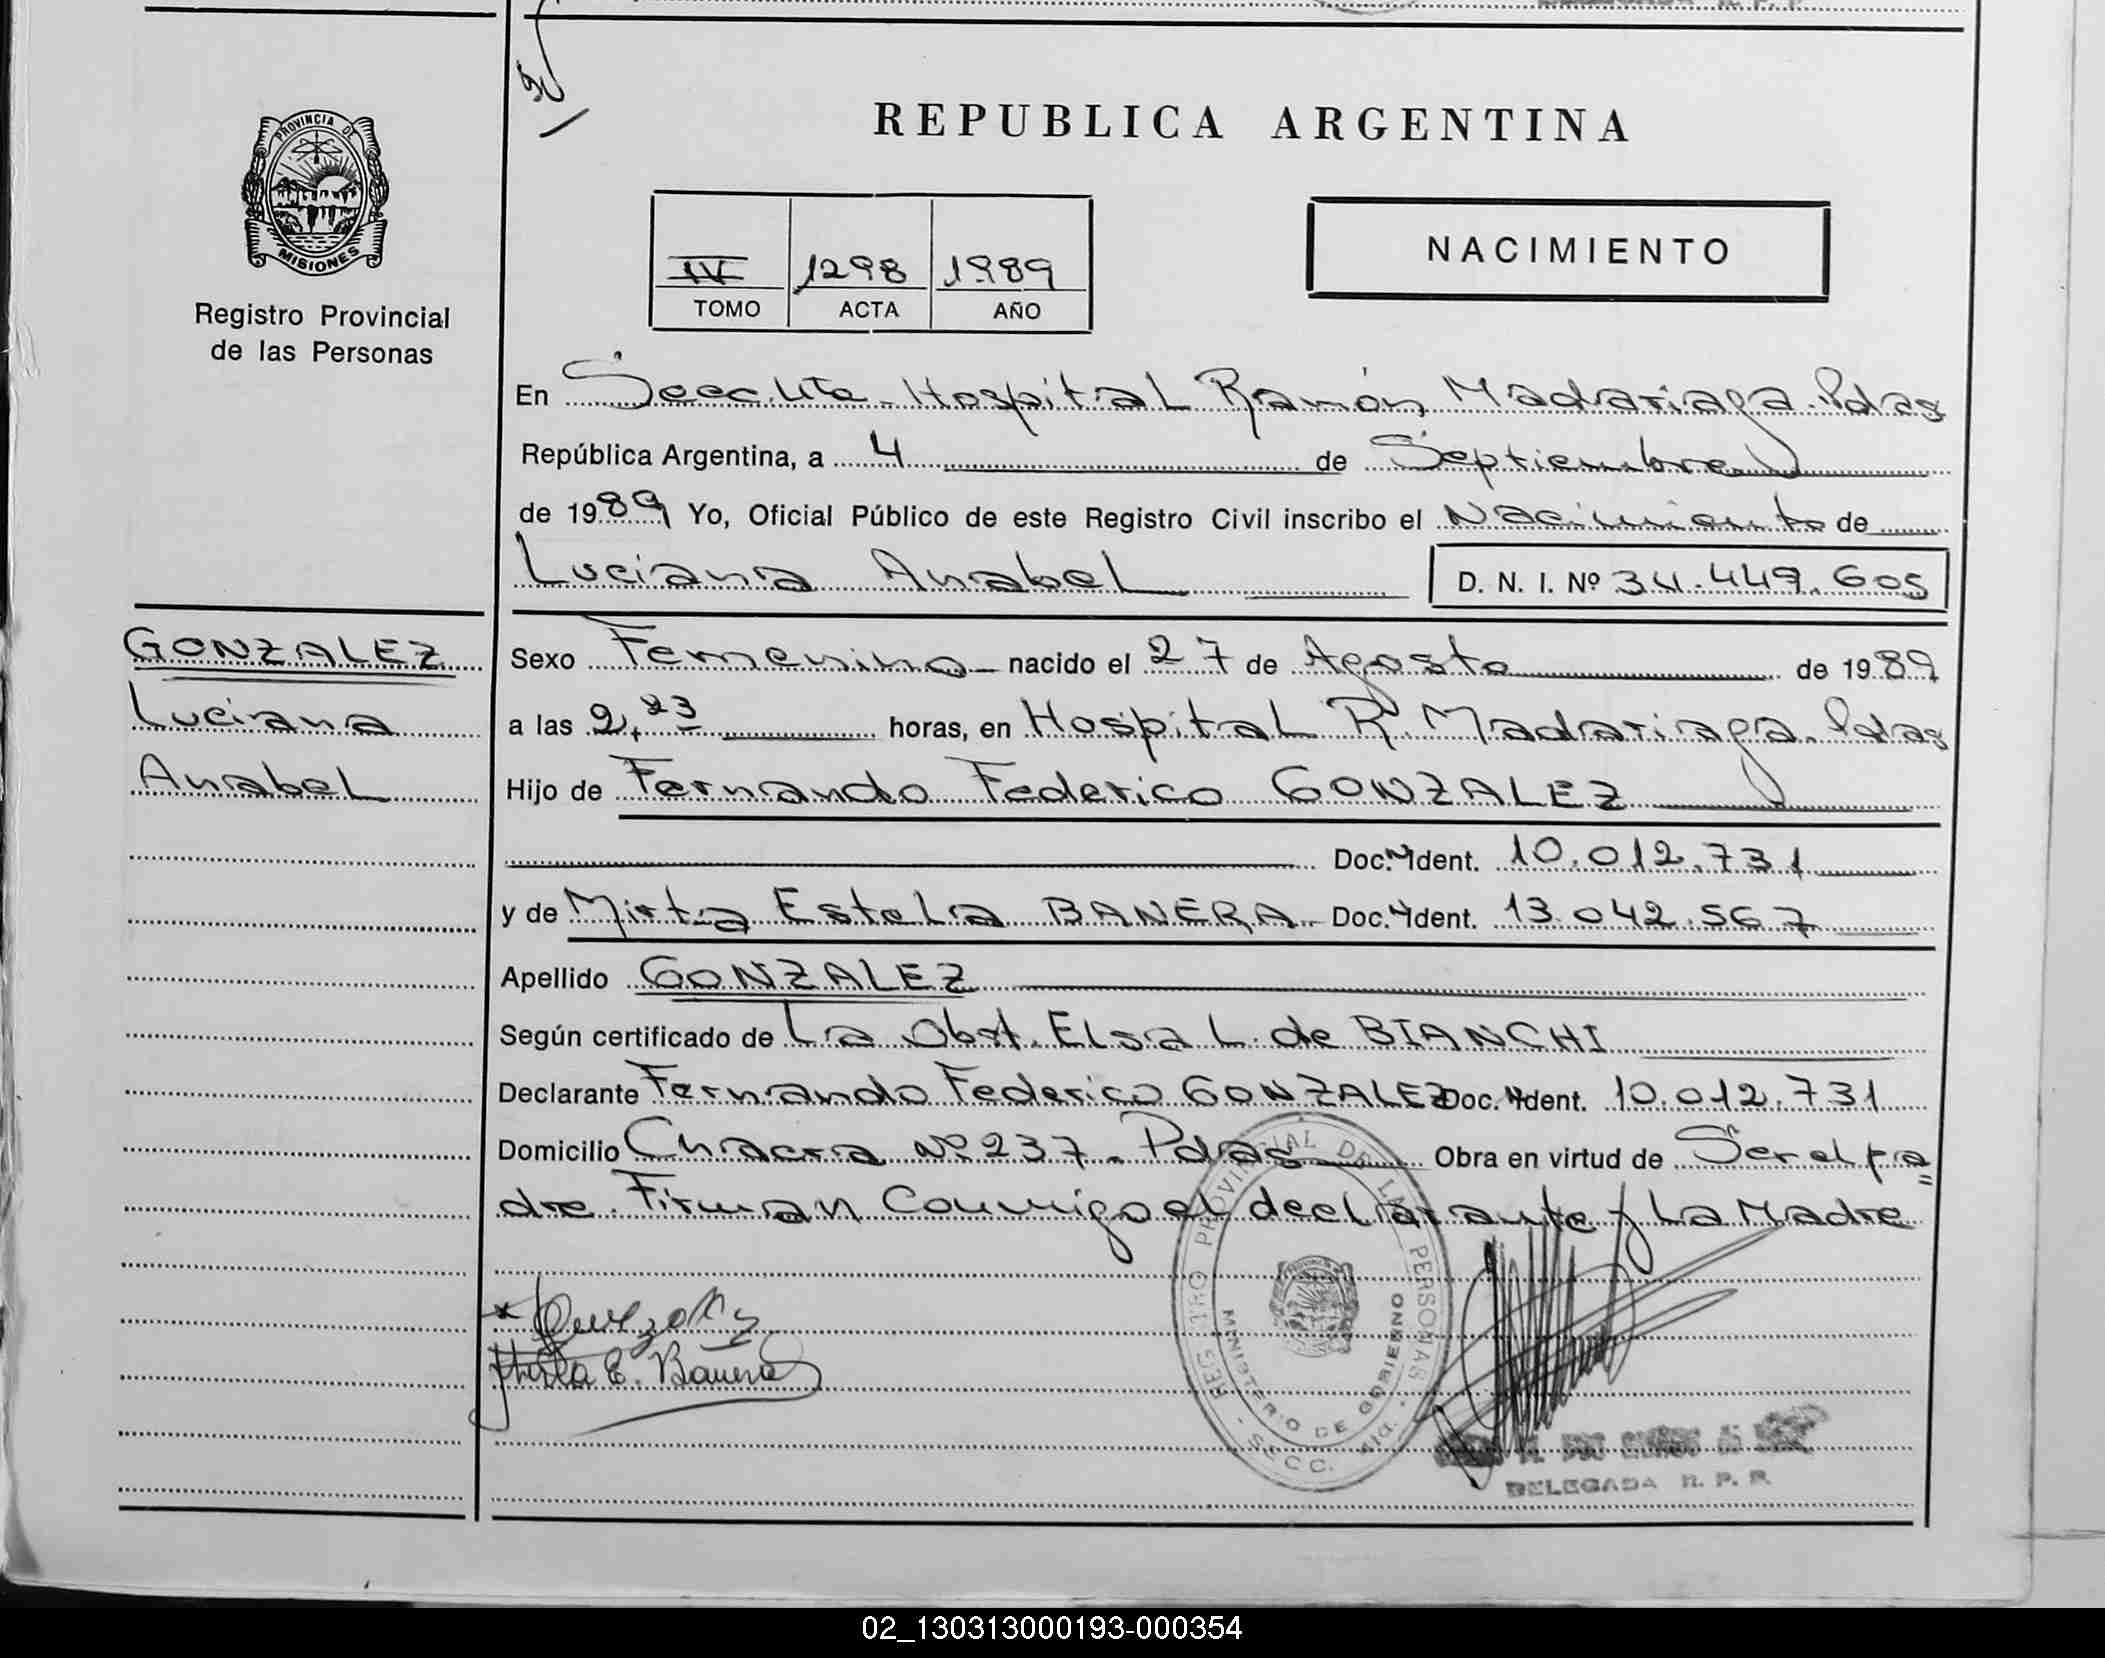 REPUBLICA ARGENTINA
PROVINCIA DE MISIONES
Registro Provincial
de las Personas
IV 1298 1989
TOMO ACTA AÑO
NACIMIENTO
En Secc. Hospital Ramón Madariaga. Pdas
República Argentina, a 4 de Septiembre
de 1989 Yo, Oficial Público de este Registro Civil inscribo el Nacimiento de
Luciana Anabel D. N. I. Nº 34.449.605
GONZALEZ
Luciana
Anabel
Sexo Femenino nacido el 27 de Agosto de 1989
a las 2,23 horas, en Hospital R. Madariaga. Pdas
Hijo de Fernando Federico GONZALEZ
Doc. Ident. 10.012.731
y de Mirta Estela BANERA Doc. Ident. 13.042.567
Apellido GONZALEZ
Según certificado de La Obst. Elsa L. de BIANCHI
Declarante Fernando Federico GONZALEZ Doc. Ident. 10.012.731
Domicilio Chacra Nº 237. Pdas Obra en virtud de Ser el pa=
dre. Firman Conmigo el declarante y La Madre
REGISTRO PROVINCIAL DE LAS PERSONAS
MINISTERIO DE GOBIERNO
SECC. 4ta.
E. Banera
DELEGADA R. P. P.
02_130313000193-000354